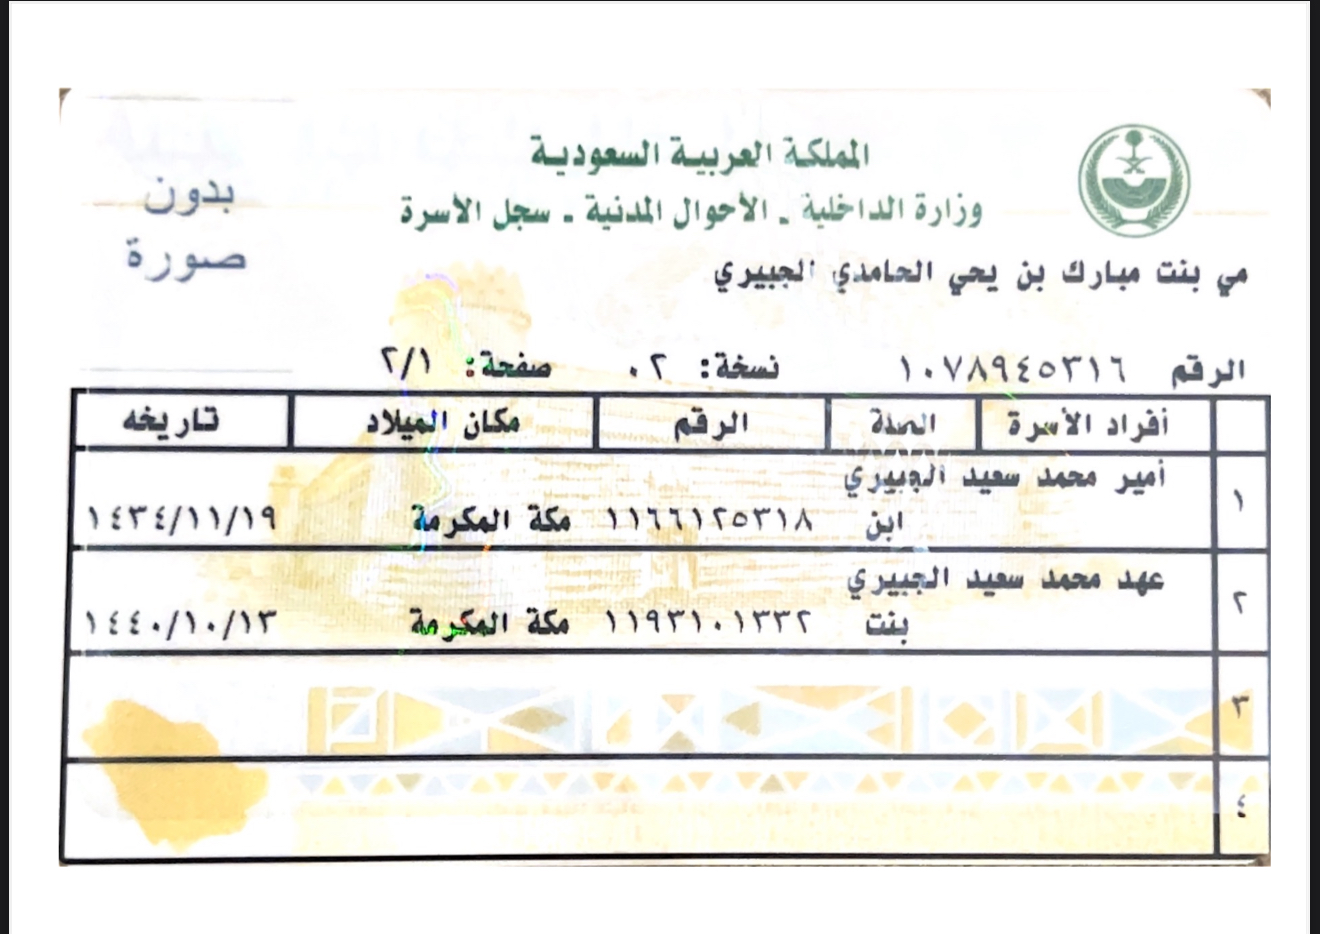 المملكة العربية السعودية
وزارة الداخلية - الأحوال المدنية - سجل الأسرة
بدون
صورة
مي بنت مبارك بن يحي الحامدي الجبيري
الرقم ١٠٧٨٩٤٥٣١٦ نسخة: ٠٢ صفحة: ٢/١
أفراد الأسرة الصلة الرقم مكان الميلاد تاريخه
١ أمير محمد سعيد الجبيري
ابن ١١٦٦١٢٥٣١٨ مكة المكرمة ١٤٣٤/١١/١٩
٢ عهد محمد سعيد الجبيري
بنت ١١٩٣١٠١٣٣٢ مكة المكرمة ١٤٤٠/١٠/١٣
٣
٤